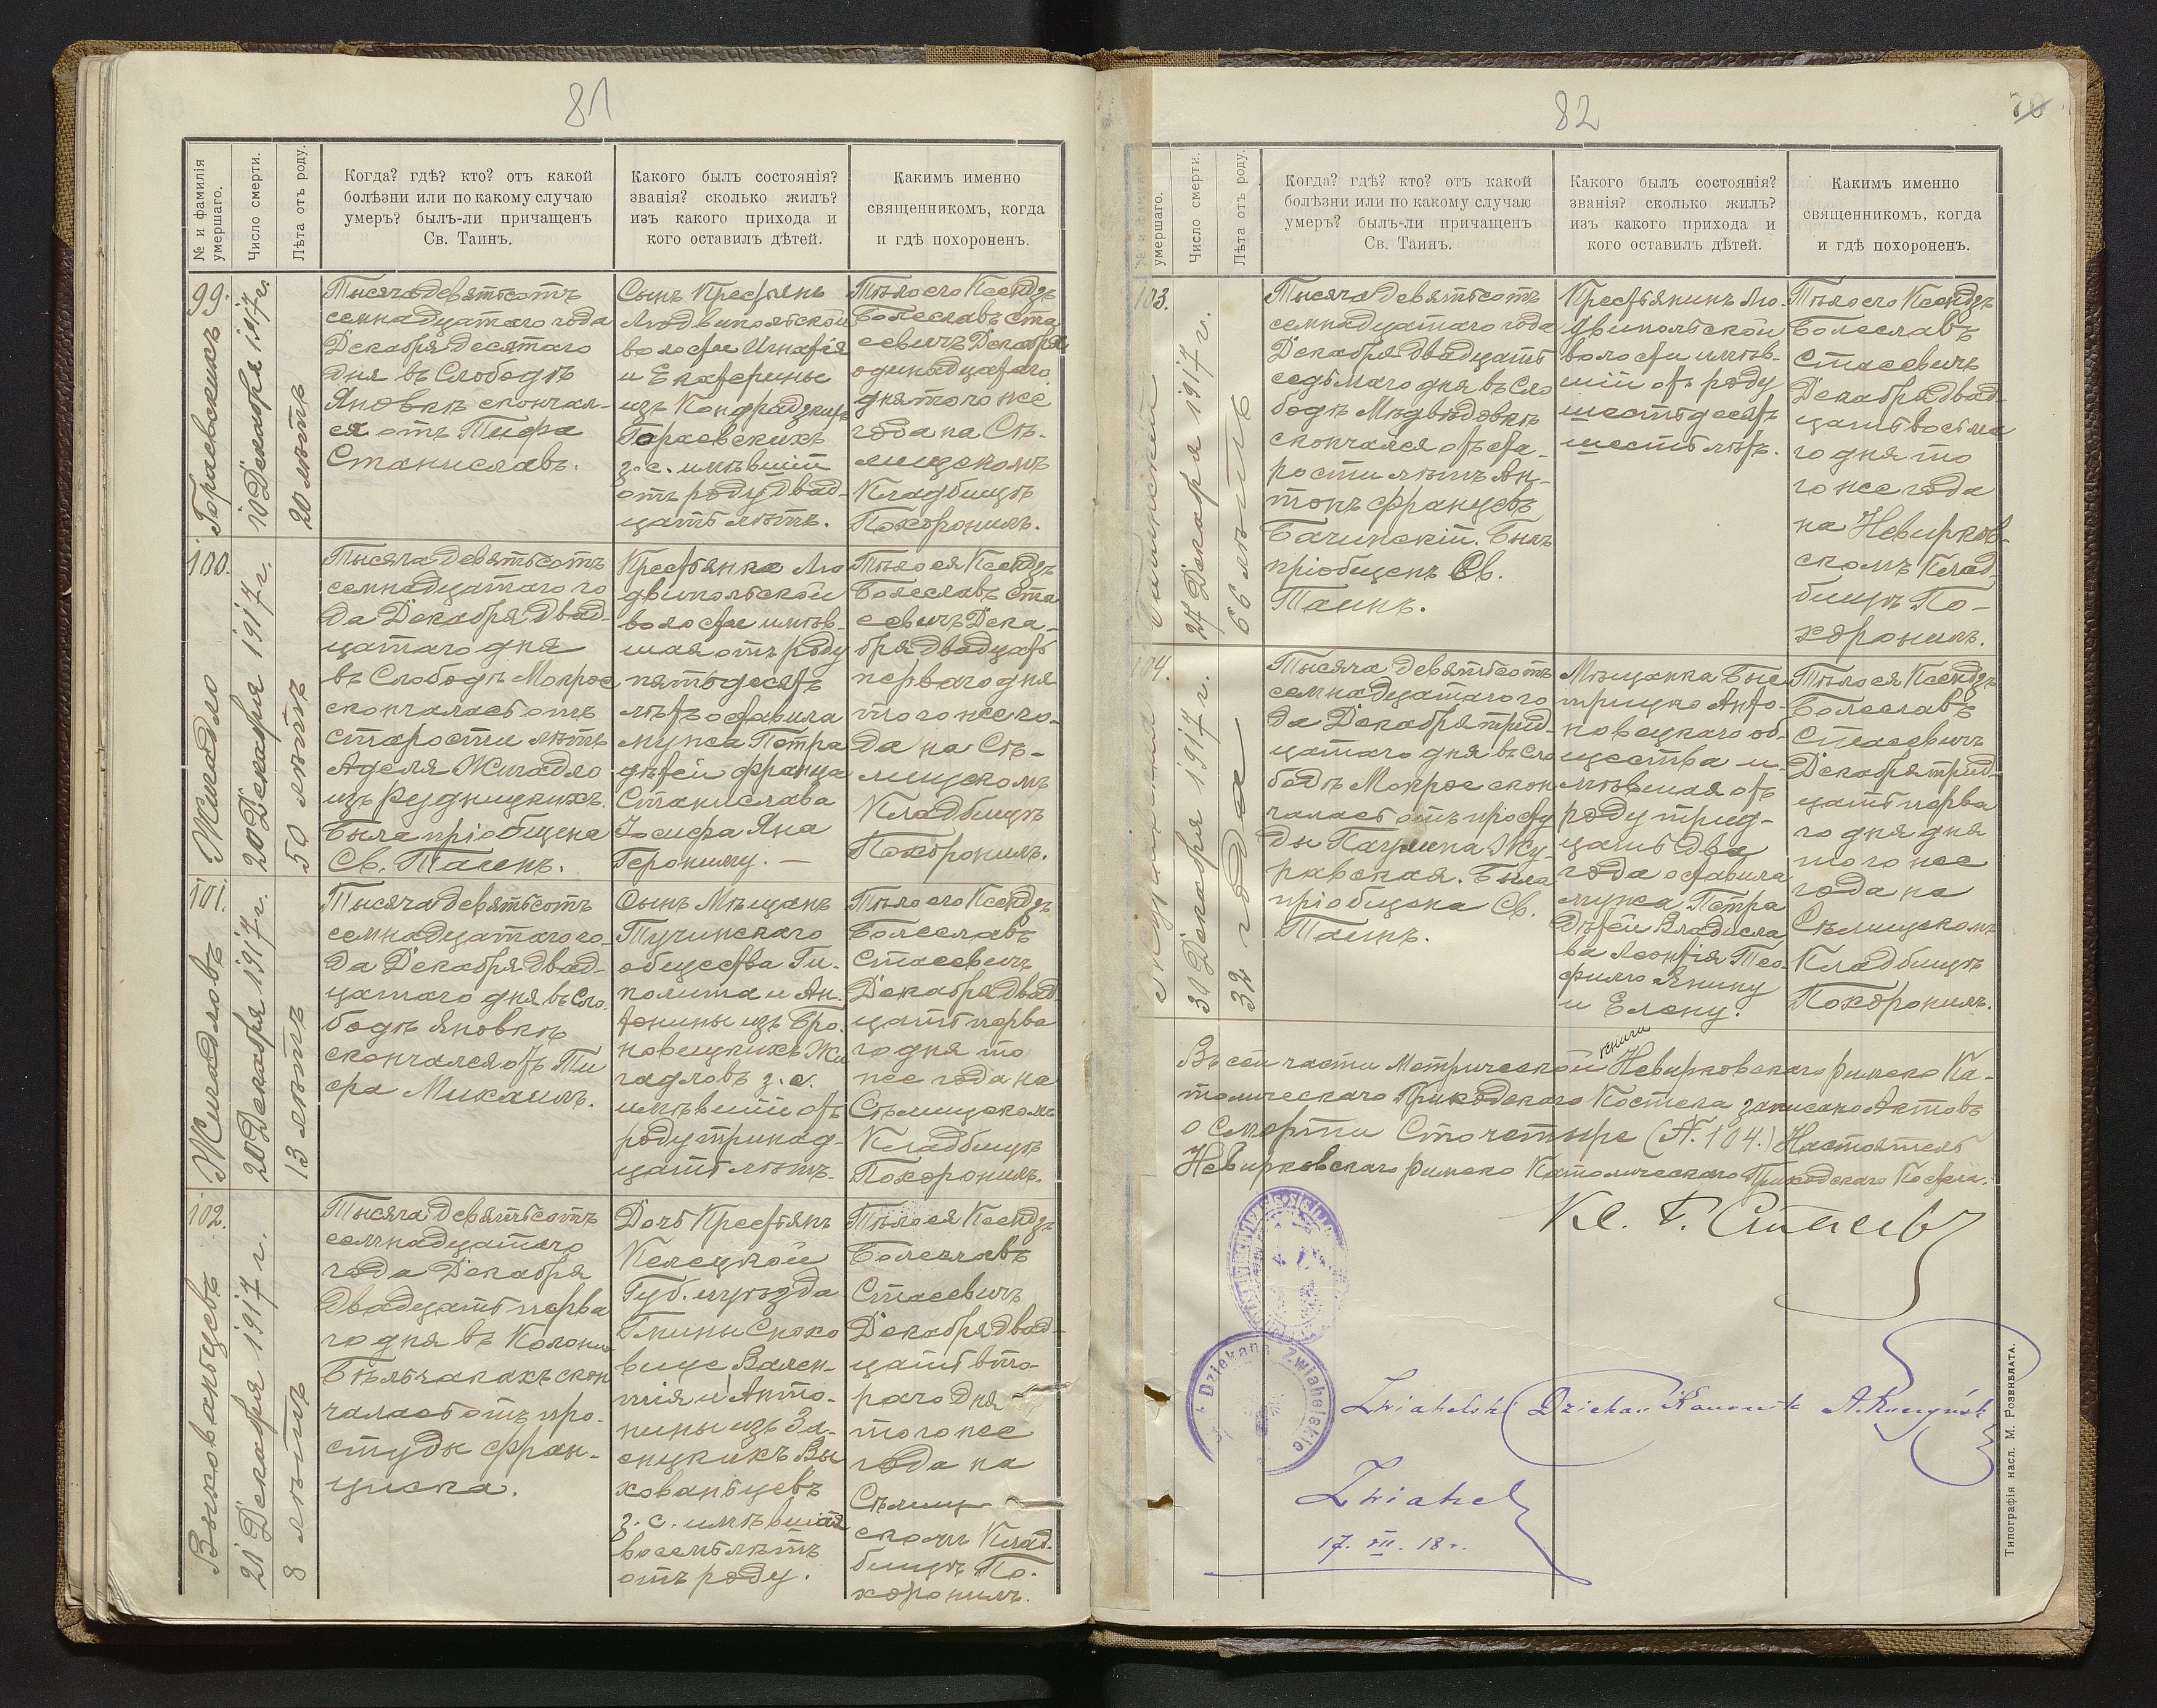 81
№ и фамилія
умершаго.
Число смерти.
Лѣта отъ роду.
Когда? гдѣ? кто? отъ какой
болѣзни или по какому случаю
умеръ? былъ-ли причащенъ
Св. Таинъ.
Какого былъ состоянія?
званія? сколько жилъ?
изъ какого прихода и
кого оставилъ дѣтей.
Какимъ именно
священникомъ, когда
и гдѣ похороненъ.
99.
Гораевскихъ
10 Декабря 1917 г.
20 лѣтъ
Тысяча девятьсотъ
семнадцатаго года
Декабря десятаго
дня въ Слободѣ
Яновкѣ скончал-
ся отъ Тифа
Станиславъ.
Сынъ Крестьянъ
Людвипольской
волости Игнатія
и Екатерины
изъ Кондрадзкихъ
Гораевскихъ
з. с. имѣвшій
отъ роду двад-
цать лѣтъ.
Тѣло его Ксендзъ
Болеславъ Ста
севичъ Декабря
одинадцатаго
дня того же
года на Сѣ-
лищскомъ
Кладбищѣ
Похоронилъ.
100.
Жигадло
20 Декабря 1917 г.
50 лѣтъ
Тысяча девятьсотъ
семнадцатаго го
да Декабря двад-
цатаго дня
въ Слободѣ Мокрое
скончалась отъ
старости лѣтъ
Аделя Жигадло
изъ Рудницкихъ.
Была пріобщена
Св. Таинъ.
Крестьянка Лю
двипольской
волости имѣв-
шая отъ роду
пятьдесятъ
лѣтъ оставила
мужа Петра
дѣтей Франца
Станислава
Іосифа Яна
Герониму. —
Тѣло ея Ксендзъ
Болеславъ Ста
севичъ Дека-
бря двадцать
перваго дня
того же го-
да на Сѣ-
лищскомъ
Кладбищѣ
Похоронилъ.
101.
Жигадловъ
20 Декабря 1917 г.
13 лѣтъ
Тысяча девятьсотъ
семнадцатаго го-
да Декабря двад-
цатаго дня въ Сло-
бодѣ Яновкѣ
скончался отъ Ти
фа Михаилъ.
Сынъ Мѣщанъ
Тучинскаго
общества Ги-
полита и Ан-
тонины изъ Бро-
новицкихъ Жи
гадловъ з. с.
имѣвшій отъ
роду тринад-
цать лѣтъ.
Тѣло его Ксендзъ
Болеславъ
Стасевичъ
Декабря двад-
цать перва
го дня то
же года на
Сѣлищскомъ
Кладбищѣ
Похоронилъ.
102.
Выхованьцевъ
21 Декабря 1917 г.
8 лѣтъ
Тысяча девятьсотъ
семнадцатаго
года Декабря
двадцать перва
го дня въ Колоніи
Бѣльчакахъ скон
чалась отъ про-
студы Фран-
циска.
Дочь Крестьянъ
Келецкой
Губ. и уѣзда
Гмины Сноко
вице Вален-
тія и Анто-
нины изъ За-
Вы
хованьцевъ
з. с. имѣвшая
восемь лѣтъ
отъ роду.
Тѣло ея Ксендзъ
Болеславъ
Стасевичъ
Декабря двад-
цать вто-
раго дня
того же
года на
Сѣлищ-
скомъ Клад-
бищѣ По-
хоронилъ.
82
70
№ и фамилія
умершаго.
Число смерти.
Лѣта отъ роду.
Когда? гдѣ? кто? отъ какой
болѣзни или по какому случаю
умеръ? былъ-ли причащенъ
Св. Таинъ.
Какого былъ состоянія?
званія? сколько жилъ?
изъ какого прихода и
кого оставилъ дѣтей.
Какимъ именно
священникомъ, когда
и гдѣ похороненъ.
103.
Бачинскій
27 Декабря 1917 г.
66 лѣтъ
Тысяча девятьсотъ
семнадцатаго года
Декабря двадцать
седьмаго дня въ Сло
бодѣ Медвѣдовкѣ
скончался отъ ста-
рости лѣтъ Ан-
тонъ Францевъ
Бачинскій. Былъ
пріобщенъ Св.
Таинъ.
Крестьянинъ Лю
двипольской
волости имѣв-
шій отъ роду
шестьдесятъ
шесть лѣтъ.
Тѣло его Ксендзъ
Болеславъ
Стасевичъ
Декабря двад-
цать восьма
го дня то
го же года
на Невирков-
скомъ Клад-
бищѣ По-
хоронилъ.
104.
Журавская
30 Декабря 1917 г.
32 года
Тысяча девятьсотъ
семнадцатаго го
да Декабря трид-
цатаго дня въ Сло
бодѣ Мокрое скон
чалась отъ просту
ды Паулина Жу-
равская. Была
пріобщена Св.
Таинъ.
Мѣщанка Быс
трицко Анто-
новецкаго об-
щества и-
мѣвшая отъ
роду трид-
цать два
года оставила
мужа Петра
Дѣтей Владисла
ва Леонтія Тео-
филю Янину
и Елену.
Тѣло ея Ксендзъ
Болеславъ
Стасевичъ
Декабря трид-
цать перва
го дня дня
того же
года на
Сѣлищскомъ
Кладбищѣ
Похоронилъ.
Въ сей части Метрической книги Невирковскаго Римско Ка-
толическаго Приходскаго Костела записано Актовъ
о Смерти Сто четыре (№. 104.) Настоятель
Невирковскаго Римско Католическаго Приходскаго Костела.
Кс. Б. Стасевичъ
Dziekana Zwiahelskie
Zwiahelski Dziekan Kanonik A.
Zwiahel
17. VII. 18 r.
Типографія насл. М. Ровнблата.